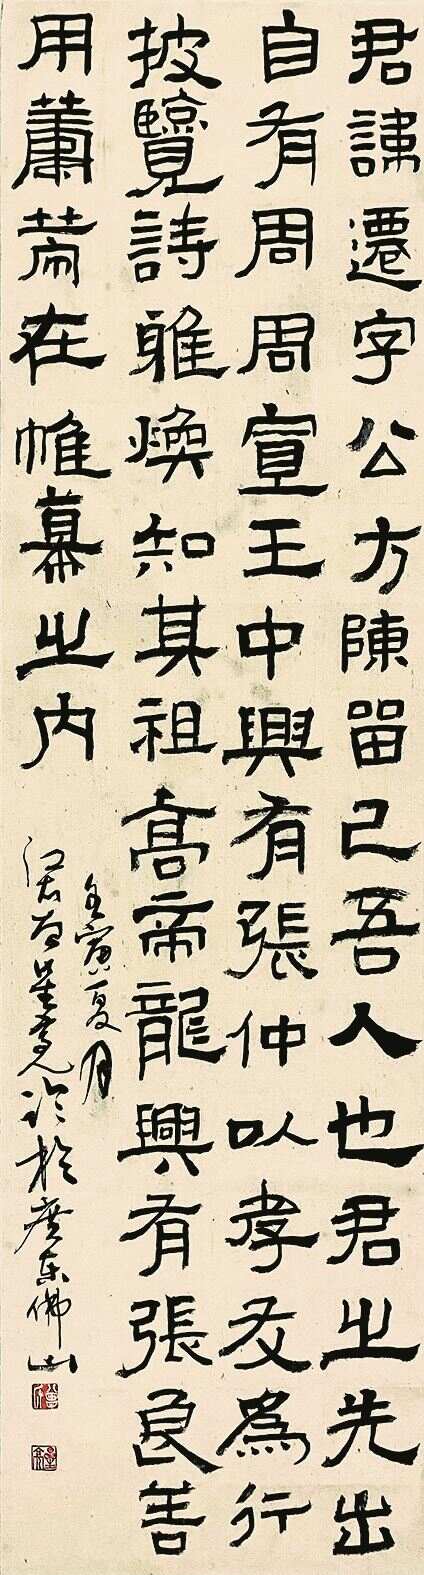 君諱遷字公方陳留己吾人也君之先出
自有周周宣王中興有張仲以孝友為行
披覽詩雅煥知其祖高帝龍興有張良善
用籌策在帷幕之內
壬寅夏月
江右曾星亮臨於廣東佛山